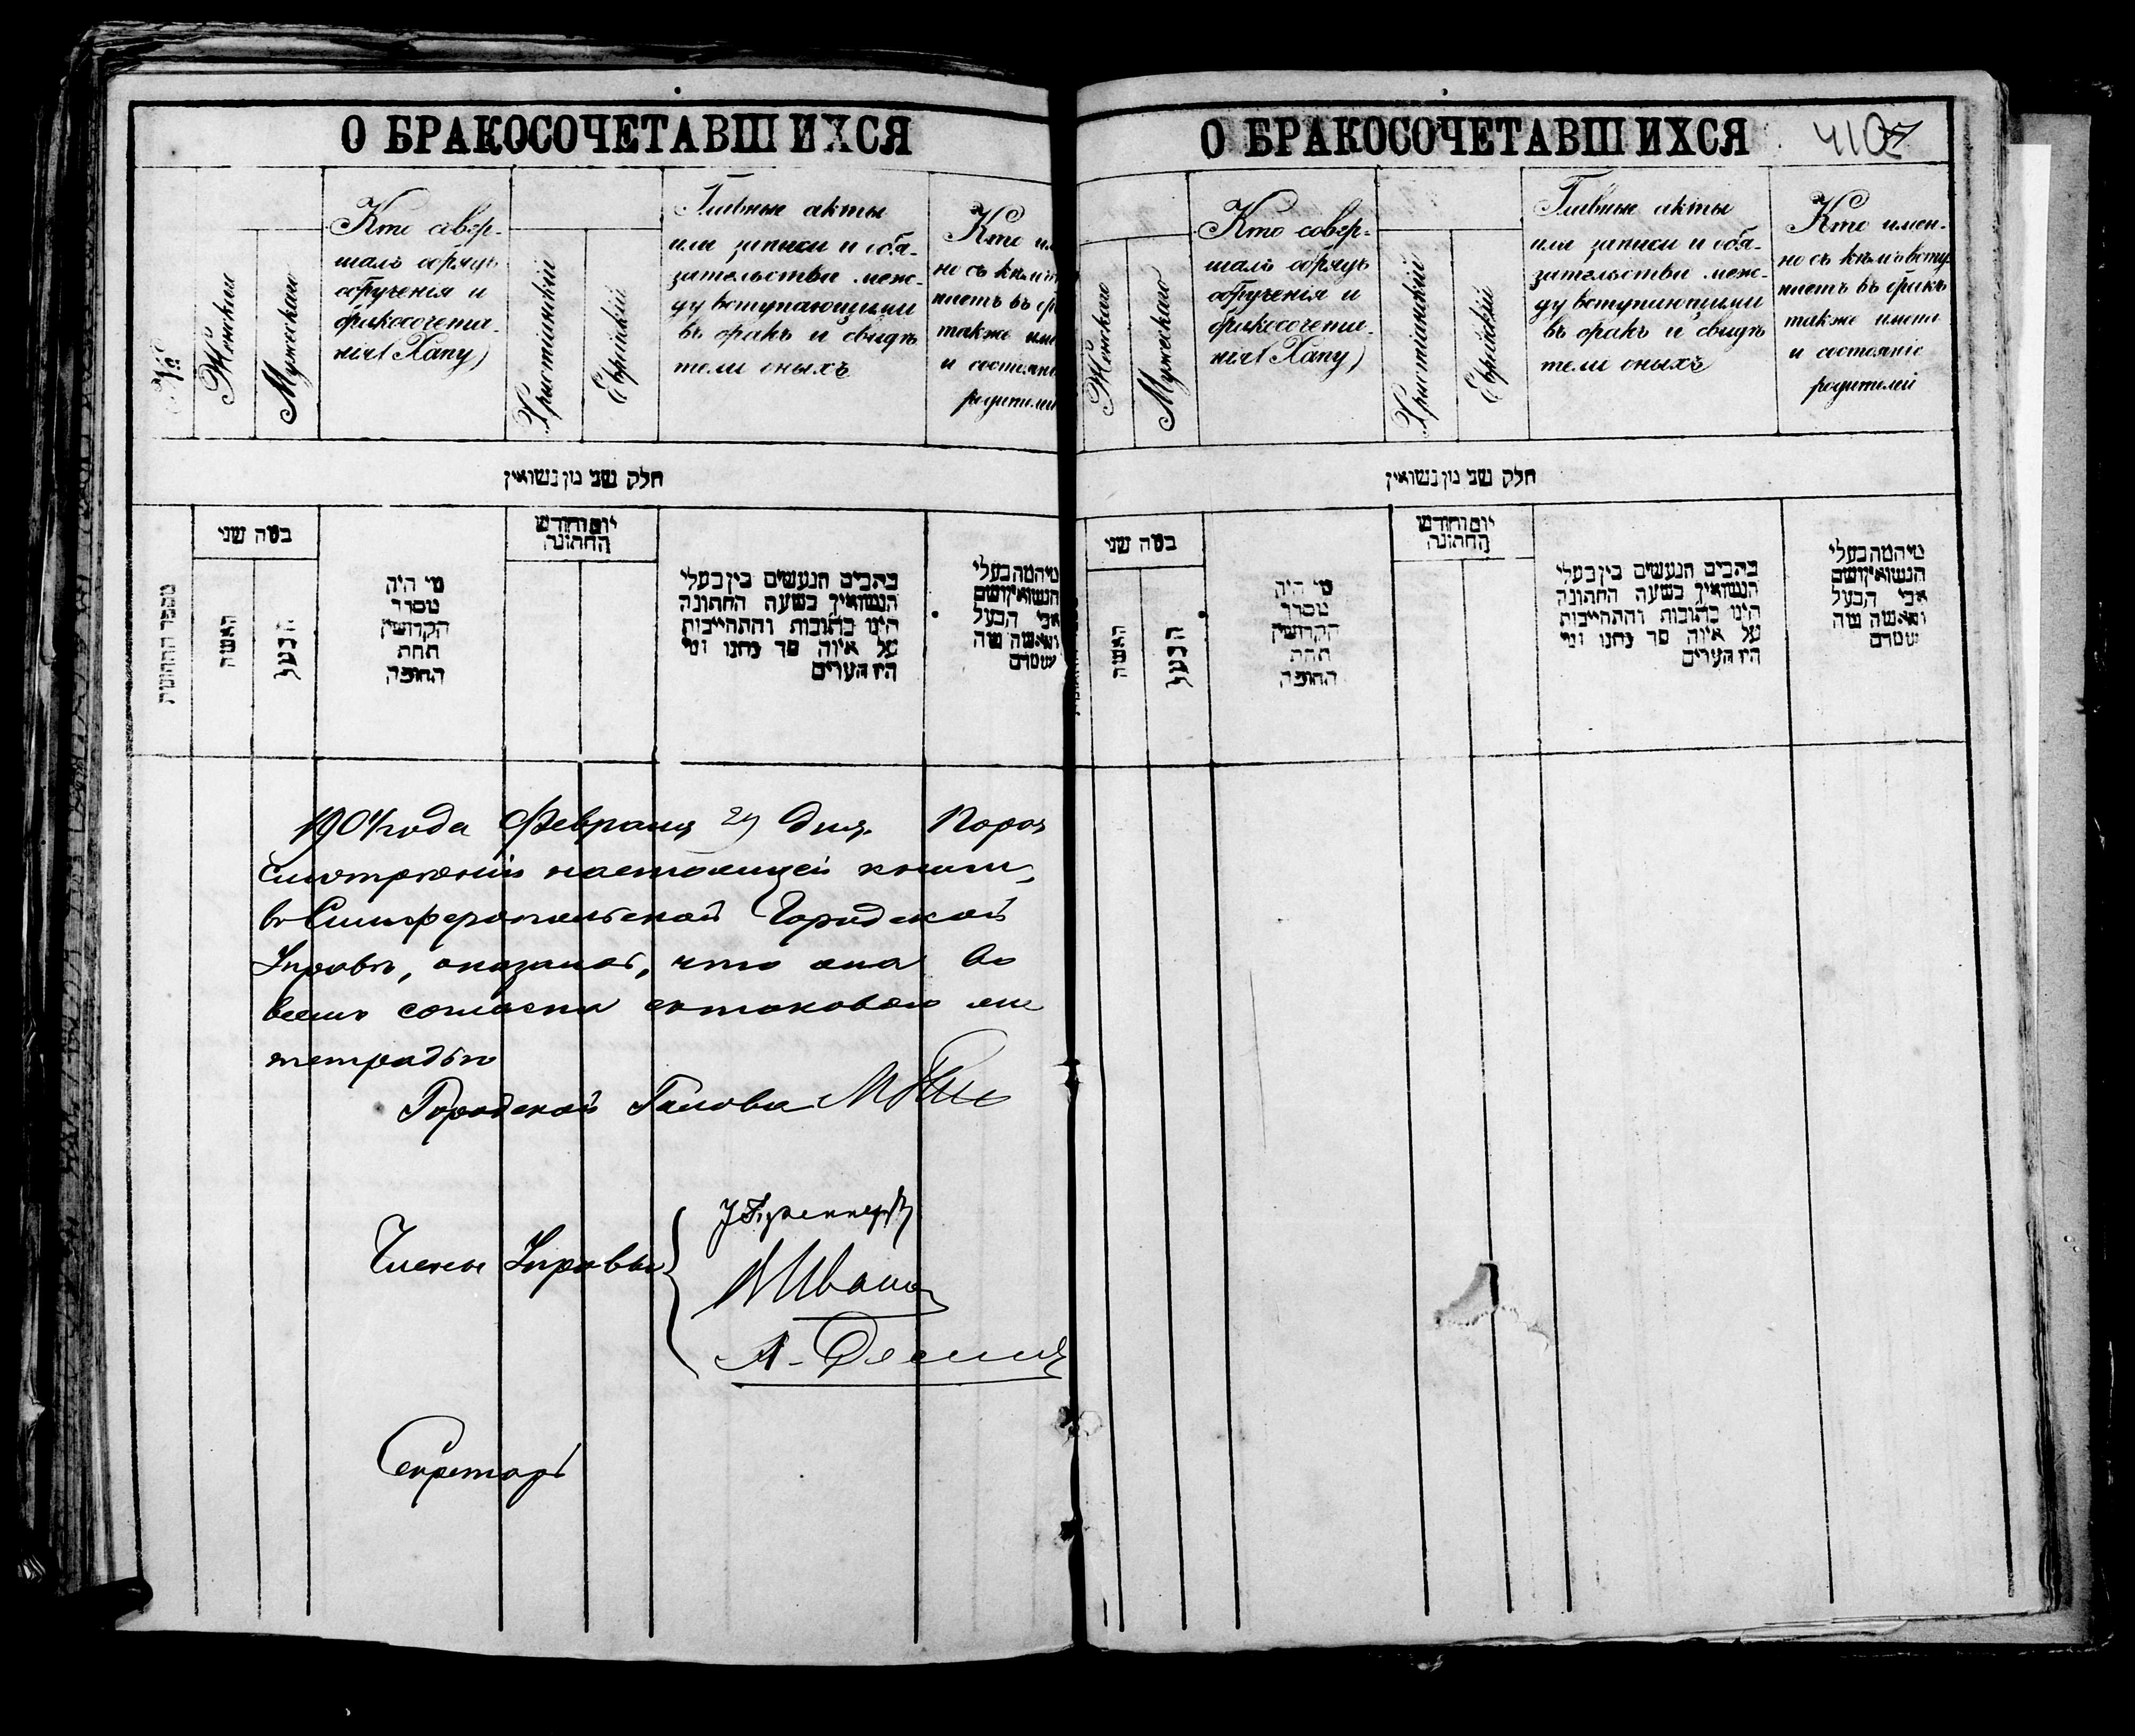 О БРАКОСОЧЕТАВШИХСЯ
№
Женскаго
Мужескаго
Кто совер-
шалъ обрядъ
обрученія и
бракосочета-
нія (Хапу)
Христіанскій
Еврейскій
Главные акты
или записи и обя-
зательства меж-
ду вступающими
въ бракъ и свидѣ
тели оныхъ
Кто им
но съ кѣмъ
паетъ въ бр
также име
и состояні
родителей
חלק שני מן נשואין
כמה שני
האשה
הבעל
מי היה
מסדר
הקדושין
תחת
החופה
יום וחודש
החתונה
כתבים הנעשים בין בעלי
הנשואין בשעה החתונה
היינו כתובות והתחייבות
על איזה סך נתנו ומי
היו העדים
מי המה בעלי
הנשואין ושם
אבי הבעל
והאשה מה
שמדם
1904 года Февраля 29 дня. По раз
смотрѣнiи настоящей книги,
въ Симферопольской Городской
Управѣ, оказалось, что она во
всемъ согласна съ таковою же
тетрадью
Городской Голова
Члены Управы
А Иванов
Секретарь
О БРАКОСОЧЕТАВШИХСЯ
410
Женскаго
Мужескаго
Кто совер-
шалъ обрядъ
обрученія и
бракосочета-
нія (Хапу)
Христіанскій
Еврейскій
Главные акты
или записи и обя-
зательства меж-
ду вступающими
въ бракъ и свидѣ
тели оныхъ
Кто имен-
но съ кѣмъ всту-
паетъ въ бракъ
также имена
и состояніе
родителей
חלק שני מן נשואין
כמה שני
האשה
הבעל
מי היה
מסדר
הקדושין
תחת
החופה
יום וחודש
החתונה
כתבים הנעשים בין בעלי
הנשואין בשעה החתונה
היינו כתובות והתחייבות
על איזה סך נתנו ומי
היו העדים
מי המה בעלי
הנשואין ושם
אבי הבעל
והאשה מה
שמדם